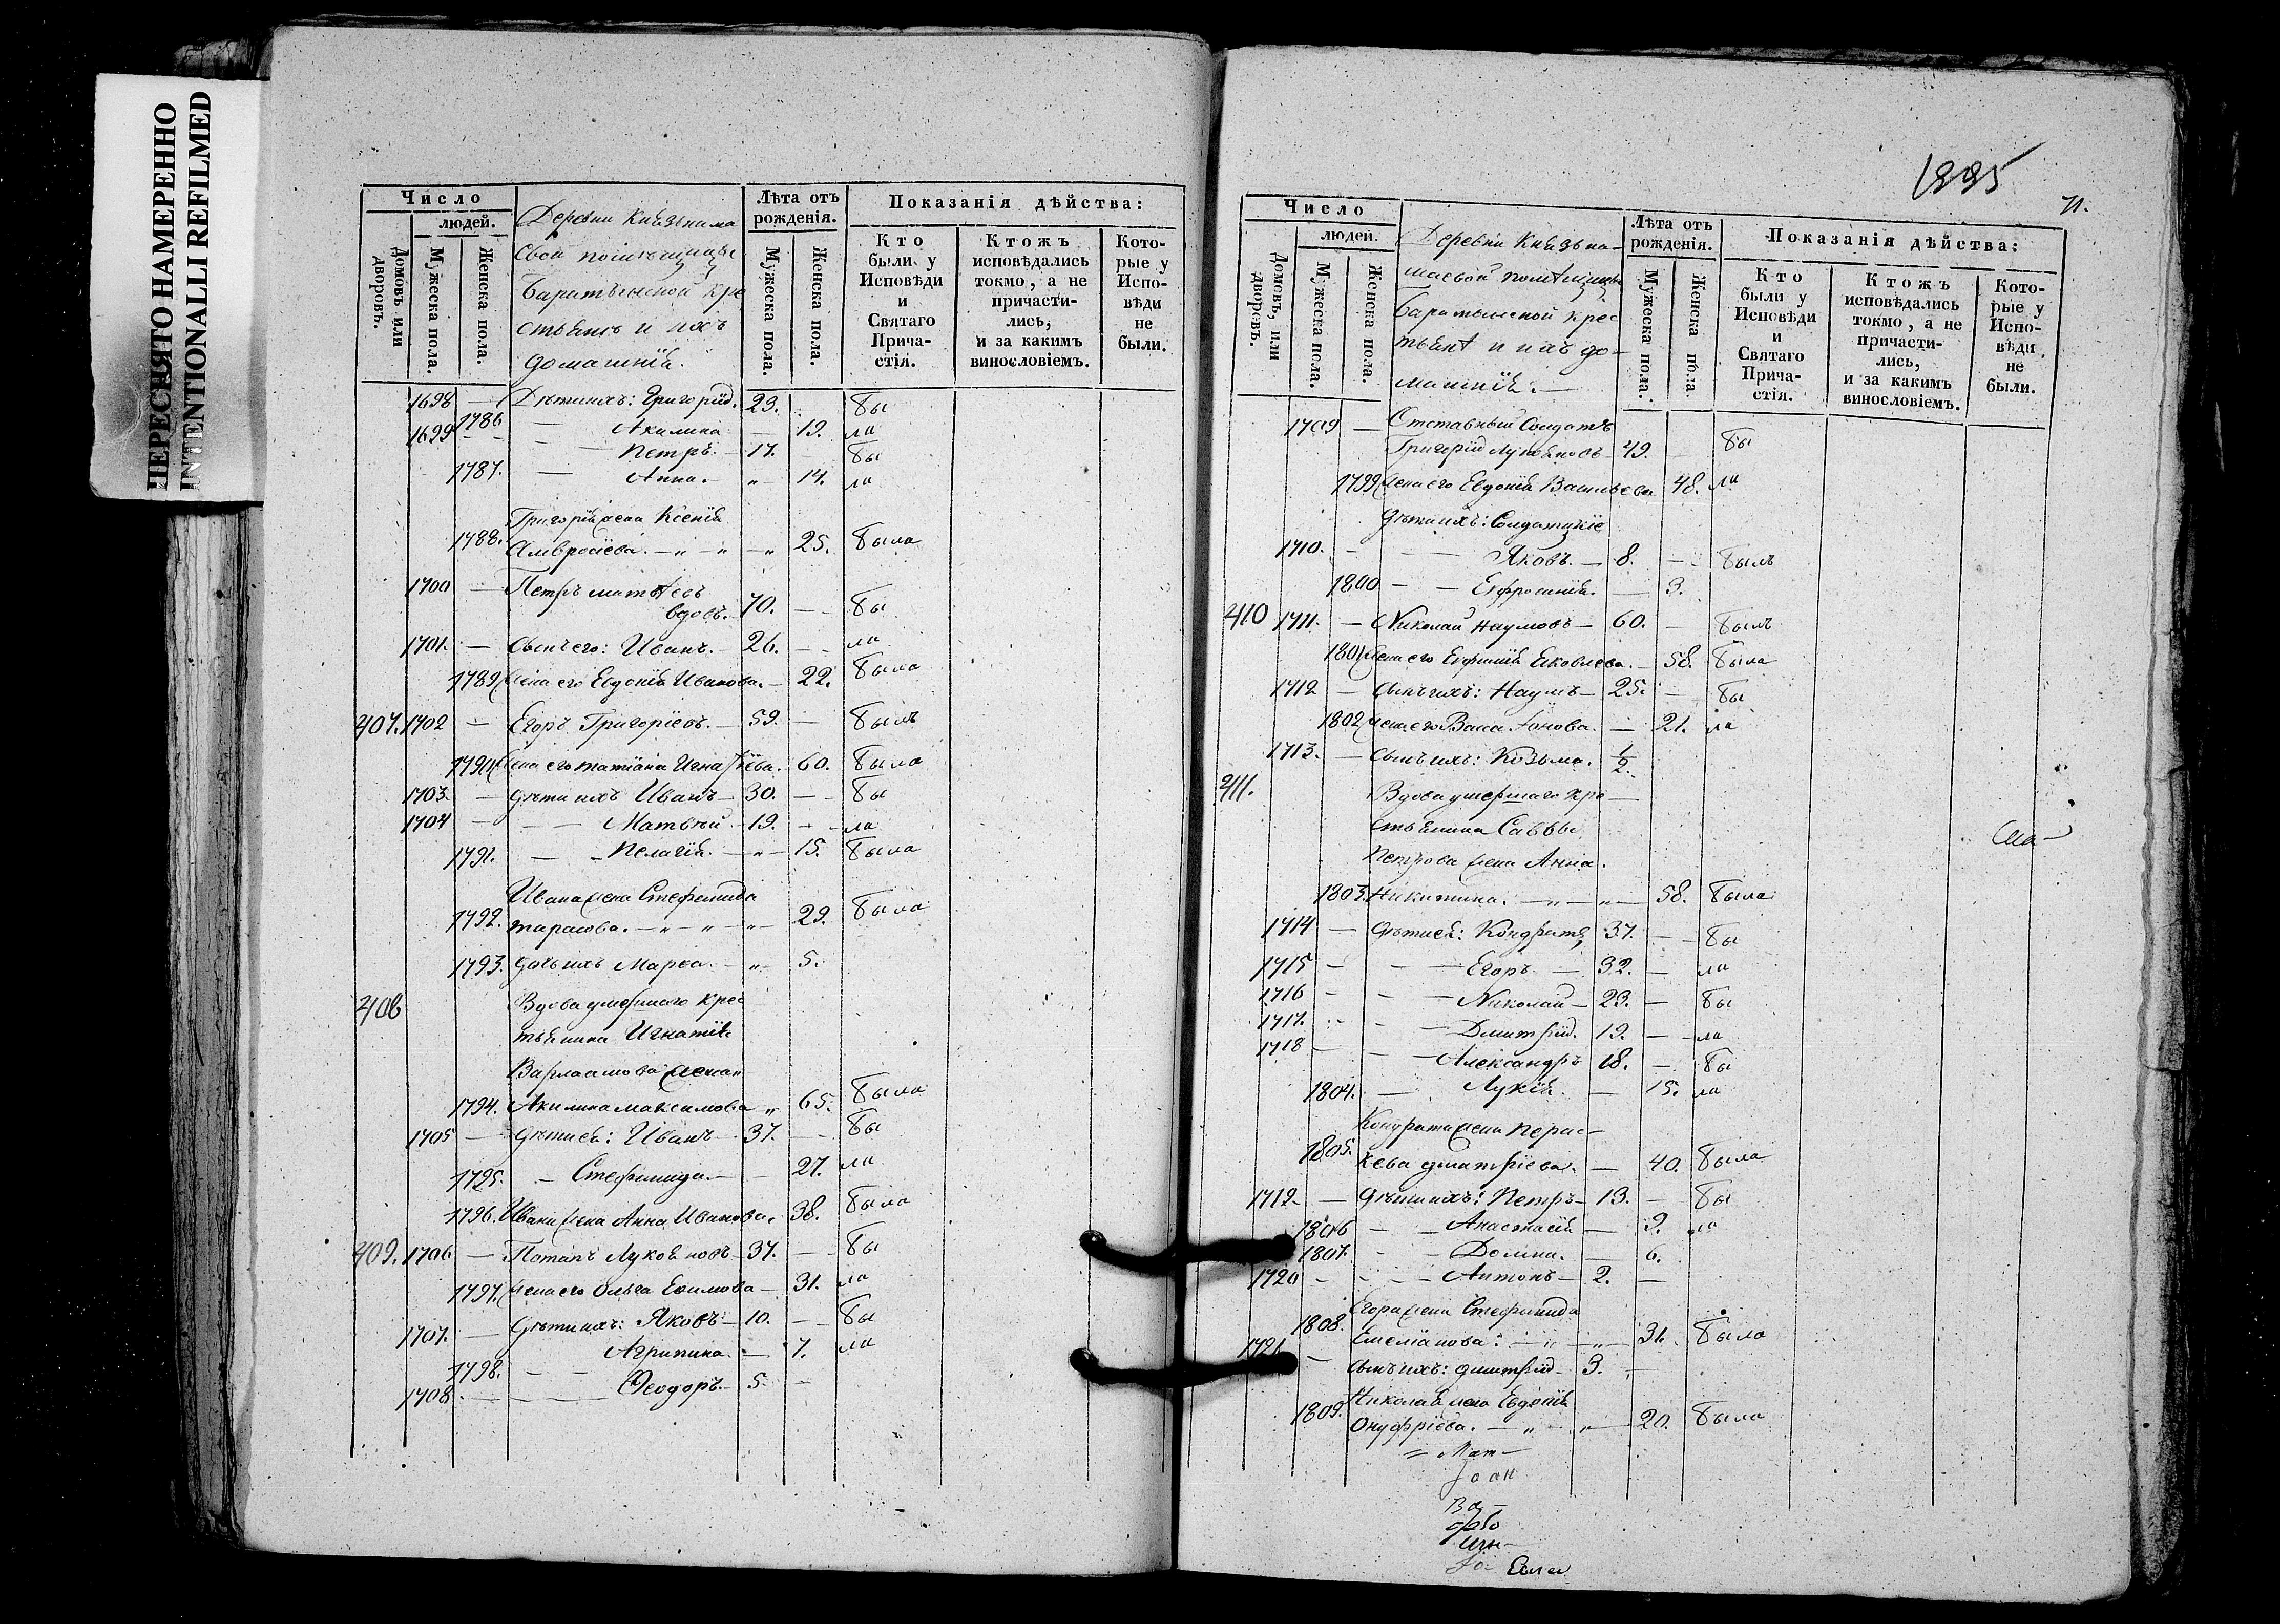 ПЕРЕСНЯТО НАМЕРЕННО
INTENTIONALLI REFILMED
Число
людей.
Домовъ или дворовъ.
Мужеска пола.
Женска пола.
Деревни Князьнама
свой помѣщицы
Баратынской кре
стьянъ и ихъ
домашнiя.
Лѣта отъ рожденiя.
Мужеска пола.
Женска пола.
Показанiя дѣйства:
Кто были у Исповѣди и Святаго Прича- стiя.
Ктожъ исповѣдались токмо, а не причасти- лись, и за какимъ винословiемъ.
Кото- рые у Испо- вѣди не были.
1698 — Дѣти ихъ: Григорiй. 23. Бы
1786 — Акилина — 19. ла
1699 — — Петръ. — 17. Бы
1787. — Анна. — „ — 14. ла
Григорiя жена Ксенiя
1788. Амвросiева. — „ — „ — „ 25. Была
1700 — Петръ Матвѣевъ
вдовъ. 70. — Бы
1701. — Сынъ его: Иванъ. — 26. — ла
1789. Жена его Евдокiя Иванова. — 22. Была
407. 1702 — Егоръ Григорiевъ. — 59. — Былъ
1790. Жена его Татiана Игнатiева. — 60. Была
1703. — Дѣти ихъ Иванъ — 30. — Бы
1704 — — Матвѣй. — 19. — ла
1791. — Пелагiя. — „ — 15. Была
Ивана жена Стефанида
1792. Тарасова. — „ — „ — „ — 29. Была
1793. Дочь ихъ Марѳа. — „ — 5.
408 Вдова умершаго крес
тьянина Игнатiя
Варлаамова жена
1794. Акилина Максимова „ 65. Была
1705 — Дѣти ея: Иванъ — 37. — Бы
1795. — Стефанида. — 27. ла
1796. Ивана жена Анна Иванова. 38. Была
409. 1706 — Потапъ Лукьяновъ — 37. — Бы
1797. Жена его Ольга Ефимова — 31. ла
1707. — Дѣти ихъ: Яковъ — 10. — Бы
1798. — Агрипина. — 7. ла
1708 — — Ѳеодоръ. — 5. —
1995
71.
Число
людей.
Домовъ, или дворовъ.
Мужеска пола.
Женска пола.
Деревни Князьна-
маевой помѣщицы
Баратынской крес
тьянъ и ихъ до-
машнiя. —
Лѣта отъ рожденiя.
Мужеска пола.
Женска пола.
Показанiя дѣйства:
Кто были у Исповѣди и Святаго Прича- стiя.
Ктожъ исповѣдались токмо, а не причасти- лись, и за какимъ винословiемъ.
Кото- рые у Испо- вѣди не были.
1709 — Отставный Солдатъ
Григорiй Лукьяновъ — 49. Бы
1799 Жена его Евдокiя Васильева 48. ла
Дѣти ихъ: Солдатскiе
1710. — — Яковъ. — 8. — Былъ
1800 — — Ефросинiя. — 3.
410 1711. — Николай Наумовъ — 60. — Былъ
1801 Жена его Ефимiя Яковлева. — 58. Была
1712 — Сынъ ихъ: Наумъ — 25. — Бы
1802 Жена его Васса — 21. ла
1713. — Сынъ ихъ: Козьма. 1/2.
411. Вдова умершаго кре —
стьянина Саввы
Петрова жена Анна.
1803. Никитина. — „ — „ — 58. Была
1714 — Дѣти ея: Кондратъ 37. — Бы
1715 — — Егоръ — 32. — ла
1716 — — Николай — 23. — Бы
1717. — — Дмитрiй. 19. — ла
1718 — — Александръ 18. — Бы
1804. — Лукiя. — 15. ла
Кондрата жена Парас-
1805. кева Дмитрiева. — 40. Была
1719 — Дѣти ихъ: Петръ — 13. — Бы
1806 — — Анастасiя — 9. ла
1807. — — Домна. — 6.
1720 — — — Антонъ — 2. —
Егора жена Стефанида
1808. Емелiанова. — „ — „ — 31. Была
1721 — Сынъ ихъ: Дмитрiй — 3. —
Николая жена Евдокiя
1809. Онуфрiева. — „ — „ — 20. Была
= Мат —
Іоан